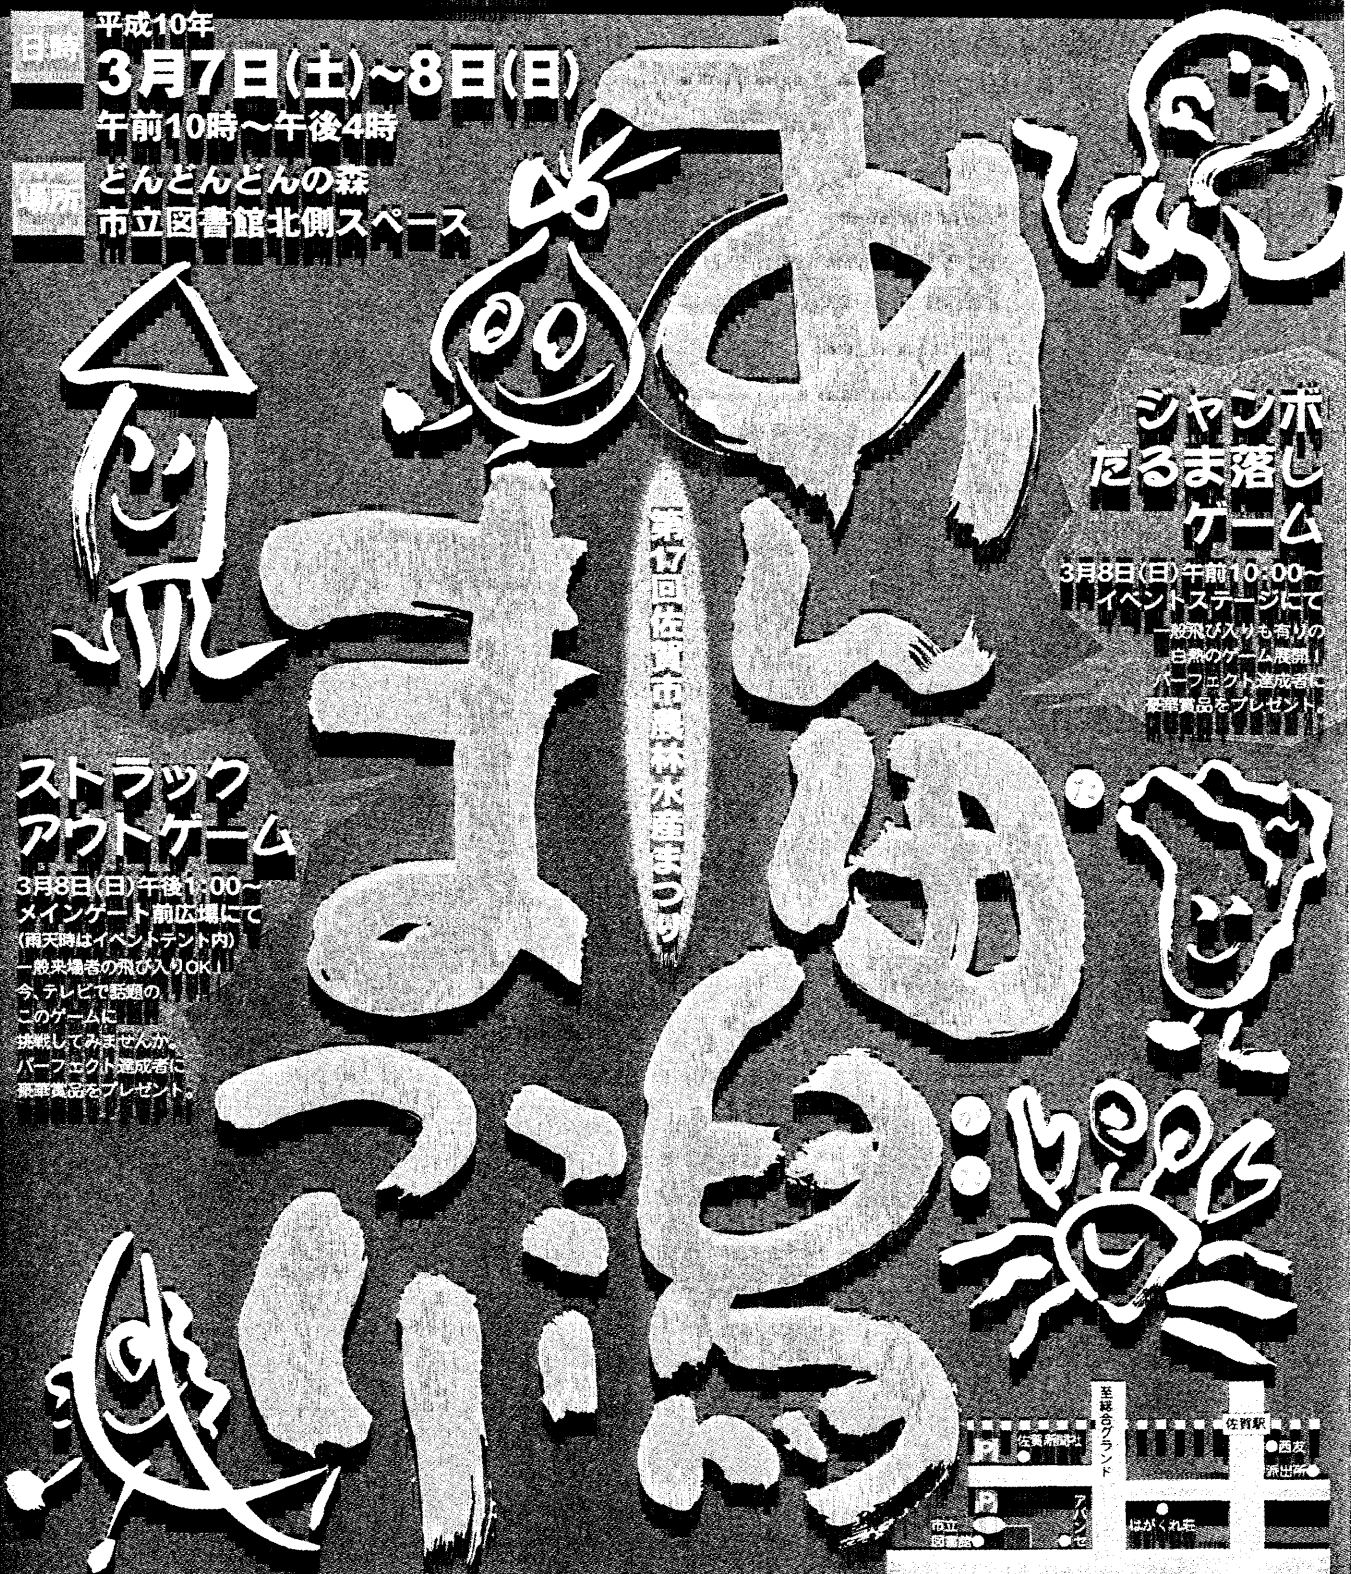 日時
平成10年
3月7日(土)~8日(日)
午前10時~午後4時
場所
どんどんどんの森
市立図書館北側スペース
まつり
第17回佐賀市農林水産まつり
ジャンボ
だるま落し
ゲーム
3月8日(日)午前10:00~
イベントステージにて
一般飛び入りも有りの
白熱のゲーム展開!
パーフェクト達成者に
豪華賞品をプレゼント。
ストラック
アウトゲーム
3月8日(日)午後1:00~
メインゲート前広場にて
(雨天時はイベントテント内)
一般来場者の飛び入りOK!
今、テレビで話題の
このゲームに
挑戦してみませんか。
パーフェクト達成者に
豪華賞品をプレゼント。
至総合グランド
佐賀駅
P
佐賀新聞社
西友
派出所
P
アバンセ
はがくれ荘
市立
図書館